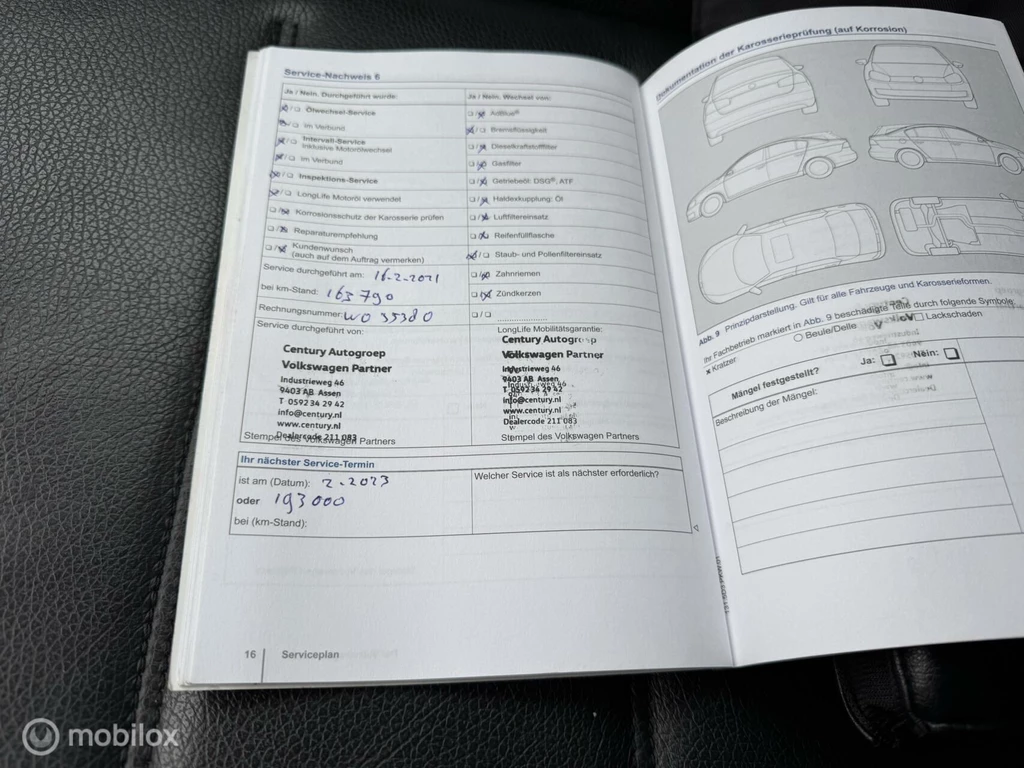 Service-Nachweis 6
Ja / Nein. Durchgeführt wurde:
Ölwechsel-Service
Im Verbund
Intervall-Service
inklusive Motorölwechsel
Im Verbund
Inspektions-Service
LongLife Motoröl verwendet
Korrosionsschutz der Karosserie prüfen
Reparaturempfehlung
Kundenwunsch
(auch auf dem Auftrag vermerken)
Service durchgeführt am: 16-2-2021
bei km-Stand: 163790
Rechnungsnummer: WO 35380
Service durchgeführt von:
Century Autogroep
Volkswagen Partner
Industrieweg 46
9403 AB Assen
T 0592 34 29 42
info@century.nl
www.century.nl
Dealercode 211 083
Stempel des Volkswagen Partners
Ja / Nein. Wechsel von:
AdBlue®
Bremsflüssigkeit
Dieselkraftstofffilter
Gasfilter
Getriebeöl: DSG®, ATF
Haldexkupplung: Öl
Luftfiltereinsatz
Reifenfüllflasche
Staub- und Pollenfiltereinsatz
Zahnriemen
Zündkerzen
LongLife Mobilitätsgarantie:
Century Autogroep
Volkswagen Partner
Industrieweg 46
9403 AB Assen
T 0592 34 29 42
info@century.nl
www.century.nl
Dealercode 211 083
Stempel des Volkswagen Partners
Ihr nächster Service-Termin
ist am (Datum): 2-2023
oder 193000
bei (km-Stand):
Welcher Service ist als nächster erforderlich?
16 Serviceplan
Dokumentation der Karosserieprüfung (auf Korrosion)
Abb. 9 Prinzipdarstellung. Gilt für alle Fahrzeuge und Karosserieformen.
Ihr Fachbetrieb markiert in Abb. 9 beschädigte Teile durch folgende Symbole:
x Kratzer
Beule/Delle
Lackschaden
Mängel festgestellt? Ja: Nein:
Beschreibung der Mängel:
mobilox